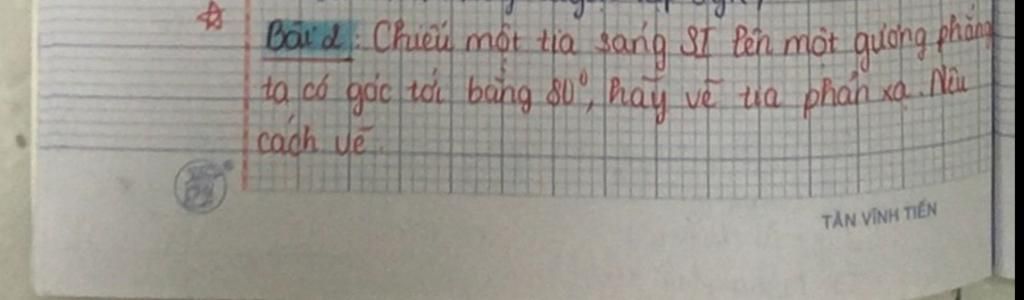 Bài 2: Chiếu một tia sáng SI lên một gương phẳng
ta có góc tới bằng 80°, hãy vẽ tia phản xạ. Nêu
cách vẽ.
TÂN VĨNH TIẾN